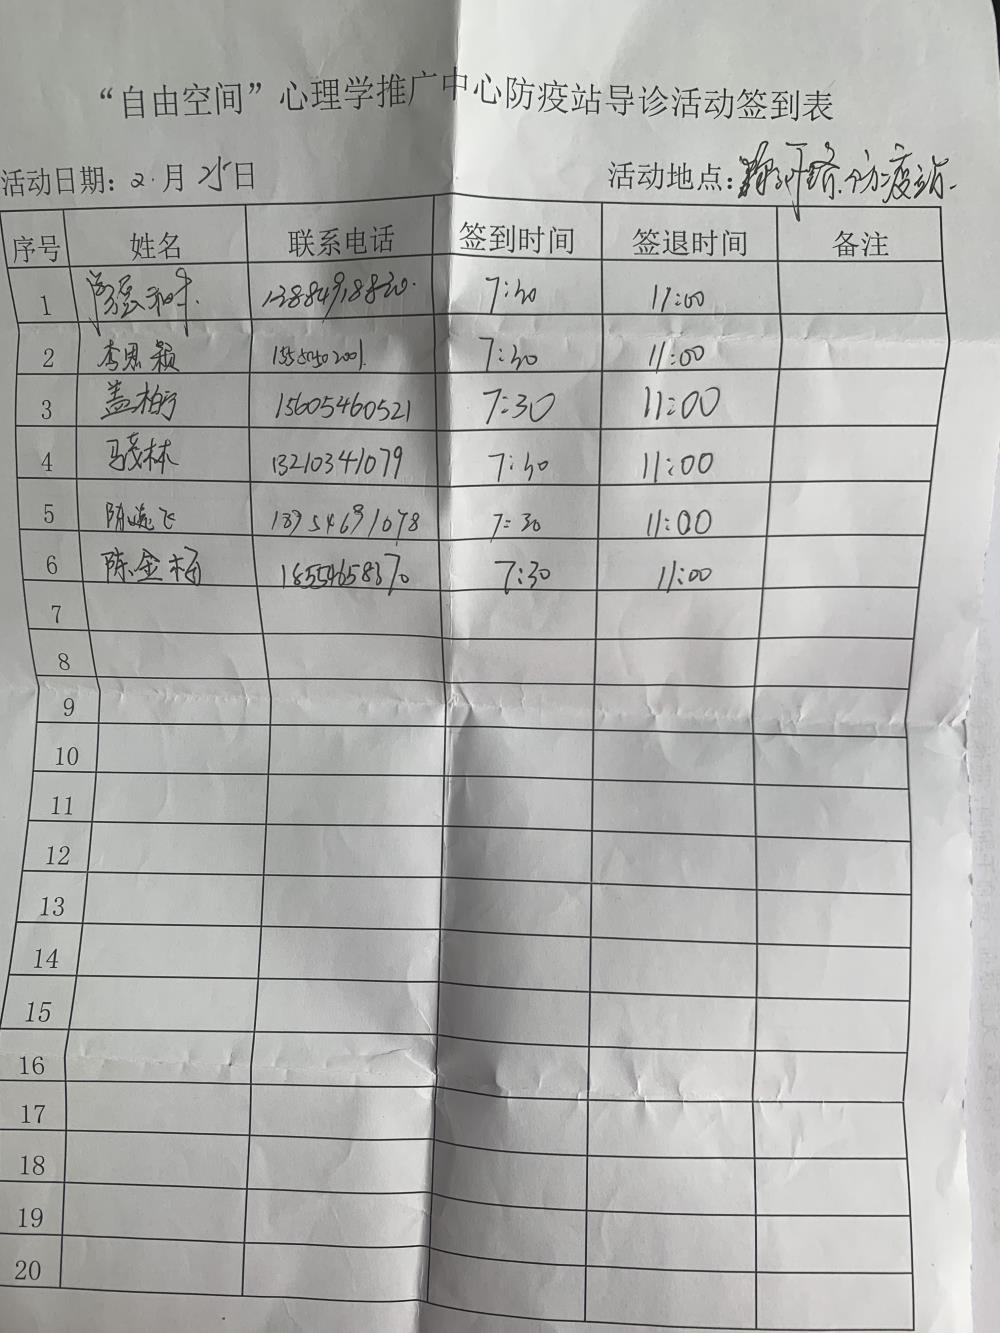 “自由空间”心理学推广中心防疫站导诊活动签到表
活动日期：2.月25日 活动地点：防疫站.
序号 姓名 联系电话 签到时间 签退时间 备注
1 13884918830. 7:30 11:00
2 李思颖 7:30 11:00
3 盖柏宁 15605460521 7:30 11:00
4 马茂林 13210341079 7:30 11:00
5 陈逸飞 13954691078 7:30 11:00
6 陈金梅 18554658370 7:30 11:00
7
8
9
10
11
12
13
14
15
16
17
18
19
20